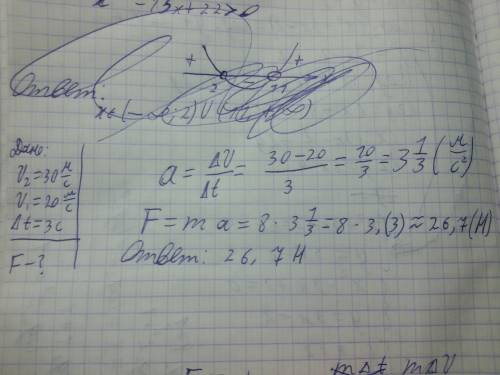 - 13x + 22 > 0
+ 2 11 +
Ответ:
x ∈ (-∞; 2) ∪
Дано:
V₂ = 30 м/с
V₁ = 20 м/с
Δt = 3с
F - ?
a = ΔV/Δt = (30-20)/3 = 10/3 = 3 1/3 (м/с²)
F = m a = 8 · 3 1/3 = 8 · 3,(3) ≈ 26,7 (Н)
Ответ: 26,7 Н
mΔt mΔV